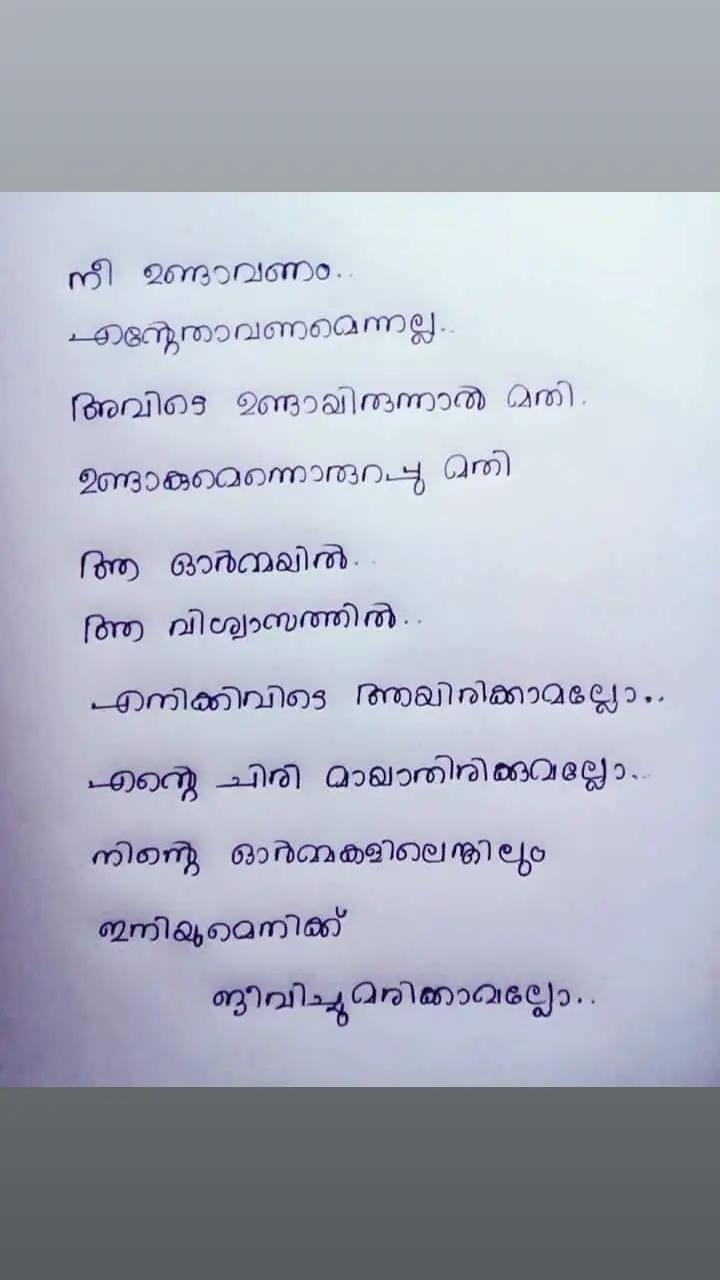 നീ ഉണ്ടാവണം..
എന്റേതാവണമെന്നല്ല..
അവിടെ ഉണ്ടായിരുന്നാൽ മതി.
ഉണ്ടാകുമെന്നൊരുറപ്പു മതി
ആ ഓർമ്മയിൽ..
ആ വിശ്വാസത്തിൽ..
എനിക്കിവിടെ ആയിരിക്കാമല്ലോ..
എന്റെ ചിരി മായാതിരിക്കുമല്ലോ..
നിന്റെ ഓർമ്മകളിലെങ്കിലും
ഇനിയുമെനിക്ക്
ജീവിച്ചുമരിക്കാമല്ലോ..